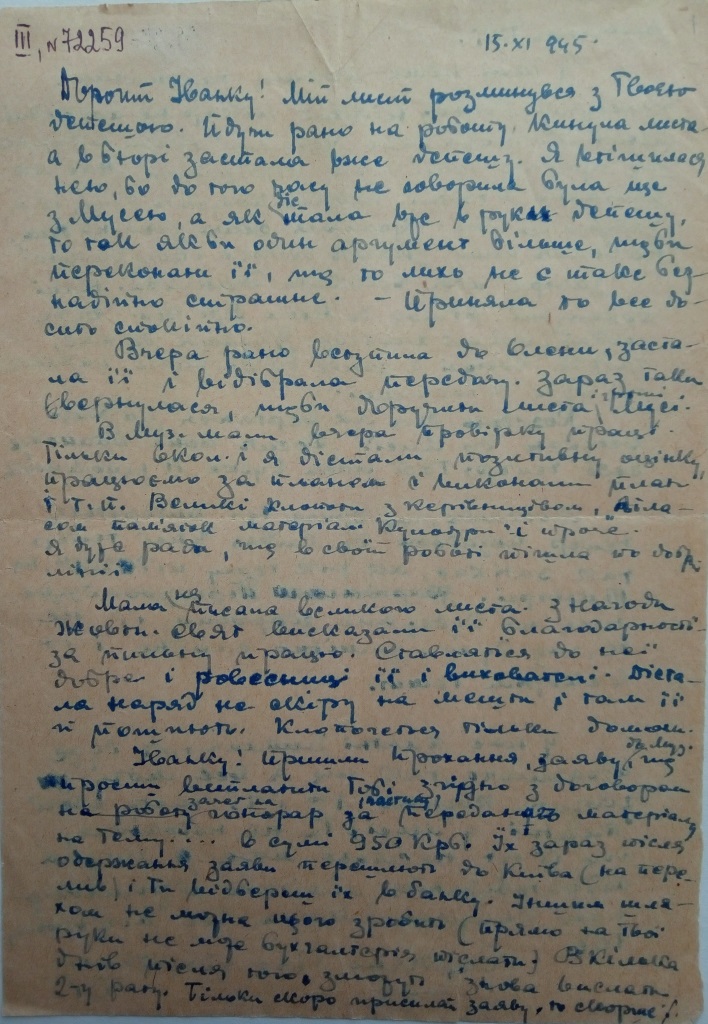 III, N 72259
15·XI 945·
Дорогий Іванку! Мій лист розминувся з Твоєю
депешою. Йдучи рано на роботу, кинула листа
а в бюрі застала вже депешу. Я втішилася
нею, бо до того часу не говорила була ще
з Мусею, а як діставала вже в руки депешу,
то так якби один аргумент більше, щоби
переконати її, що то лихо не є таке без-
надійно страшне. – Приняла то все до-
сить спокійно.
Вчера рано вступила до Олени, заста-
ла її і відібрала передачу. Зараз таки
звернулася, щоби доручити листа і гроші Мусі.
В Муз. мали вчера провірку праці.
Тільки і я дістали позитивну оцінку,
працюємо за планом і виконали план
і т. п. Великі клопоти з керівництвом,
пам'яток матеріял. культури і проче.
Я дуже рада, що в своїй роботі пішла по добрі
лінії.
Мама написала великого листа. З нагоди
Жовтн. свят висказали її благодарность
за пильну працю. Ставляться до неї
добре і ровесниці її і вихователі. Діста-
ла наряд на скіру на мешти і там її
й пошиють. Клопочеться тільки домом.
Іванку! Пришли прохання, заяву, до муз. що
просиш виплатити Тобі згідно з договором
на роботу зачет на гонорар за (частину) переданого матеріалу
на тему.... в сумі 950 крб. Їх зараз після
одержання заяви перешлють до Києва (на пере-
лив) і Ти відбереш їх в банку. Іншим шля-
хом не можна цього зробить (прямо на Твої
руки не може бухгалтерія вислати) В кілька
днів після того, зможуть знова вислати
2-гу рату. Тільки скоро присилай заяву, то скорше